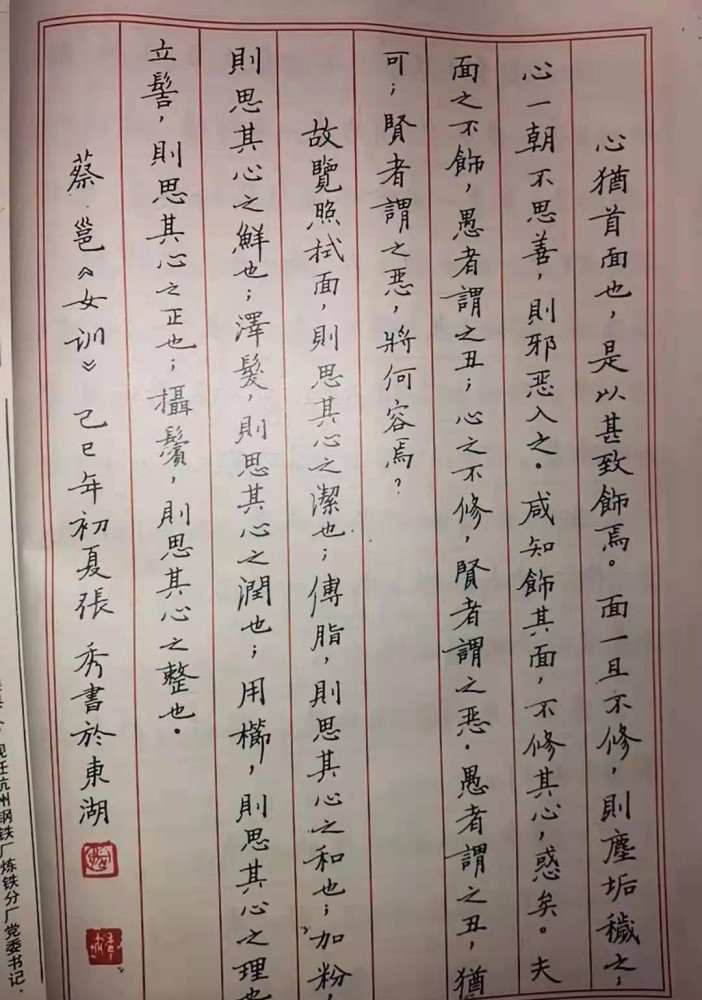 心猶首面也，是以甚致飾焉。面一旦不修，則塵垢穢之；
心一朝不思善，則邪惡入之。咸知飾其面，不修其心，惑矣。夫
面之不飾，愚者謂之丑；心之不修，賢者謂之惡。愚者謂之丑，猶
可；賢者謂之惡，將何容焉？
故覽照拭面，則思其心之潔也；傅脂，則思其心之和也；加粉，
則思其心之鮮也；澤髮，則思其心之潤也；用櫛，則思其心之理也
立髻，則思其心之正也；攝鬢，則思其心之整也。
蔡邕《女训》己巳年初夏張秀書於東湖
现任杭州钢铁厂炼铁分厂党委书记．